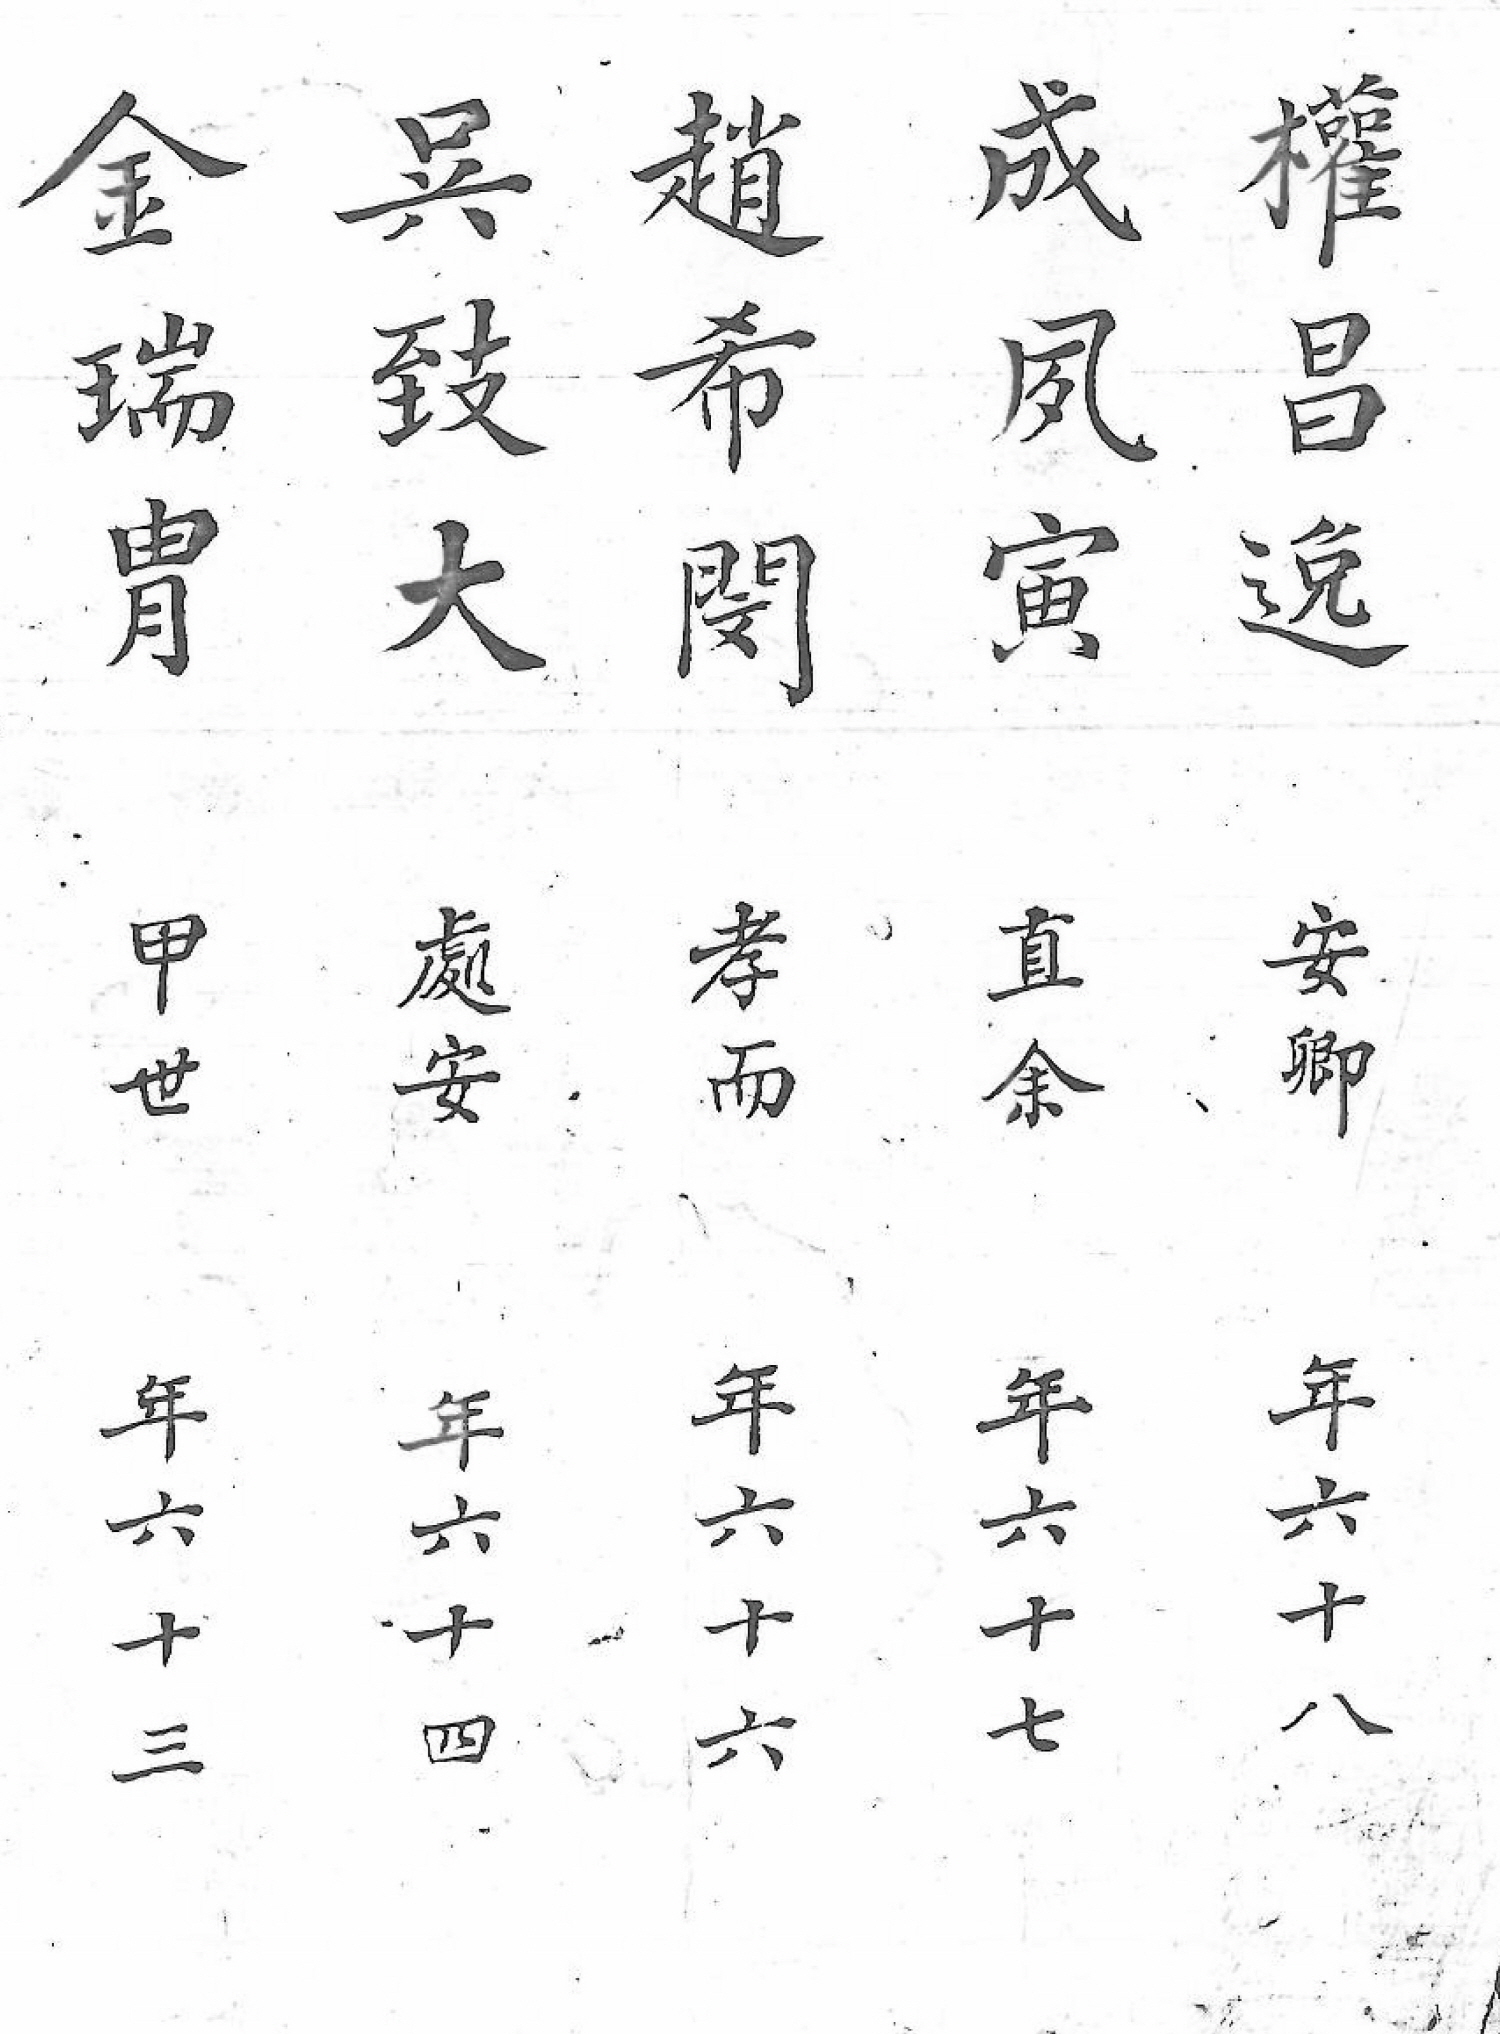 權昌逸 安卿 年六十八
成夙寅 直余 年六十七
趙希閔 孝而 年六十六
吳致大 處安 年六十四
金瑞胄 甲世 年六十三